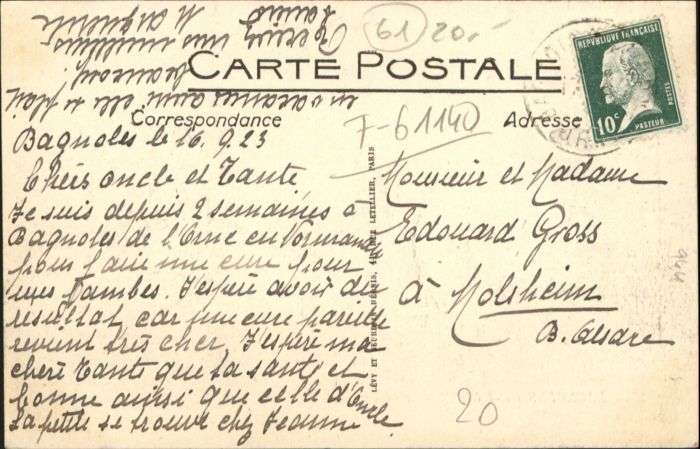 CARTE POSTALE
Correspondance
Adresse
61 20.-
7-b1140
Bagnoles le 16.9.23
Chers oncle et Tante
Je suis depuis 2 semaines à
Bagnoles de l'Orne en Normandie
pour faire une cure pour
mes jambes. J'espère avoir du
resultat, car une cure pareille
revient très cher. J'espère ma
chère Tante que ta santé est
bonne ainsi que celle d'Oncle
La petite se trouve chez Jeanne
en vacances aussi elle se plait
beaucoup
Recevez mes meilleurs
Marguerite
Monsieur et Madame
Edouard Gross
à Molsheim
B. Alsace
20
944
LÉVY ET NEURDEIN RÉUNIS, LETELLIER, PARIS
REPUBLIQUE FRANÇAISE
10c
PASTEUR
POSTES